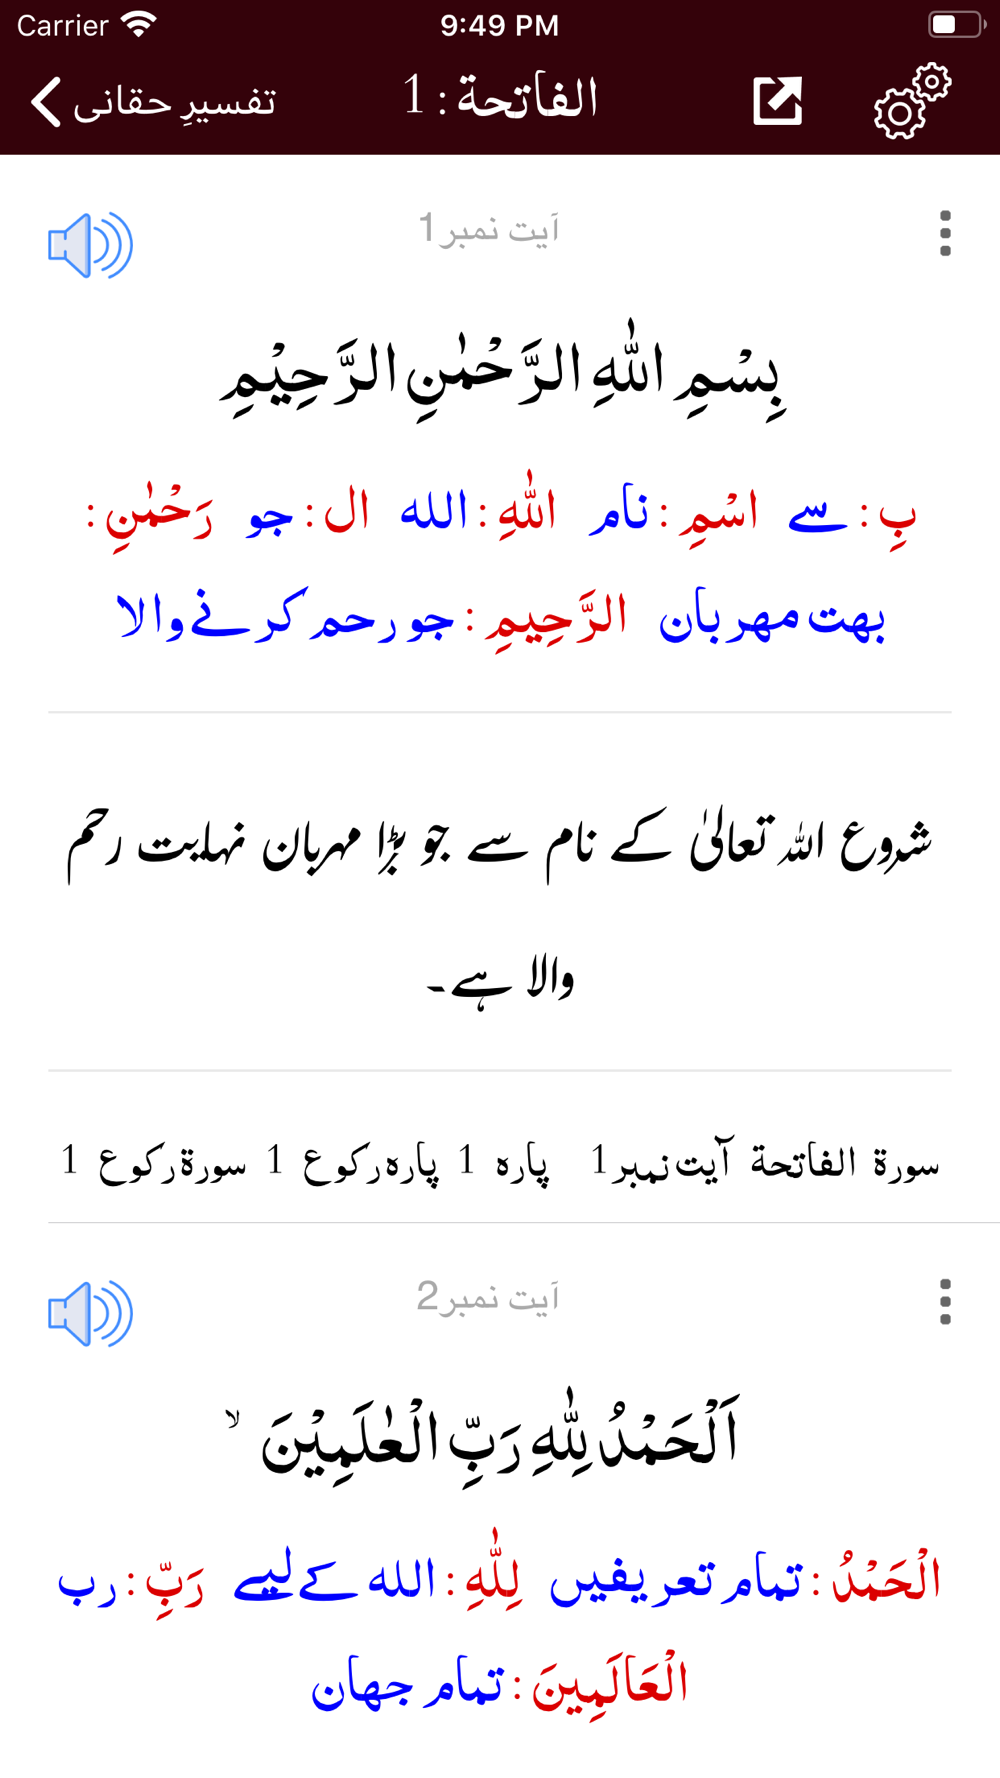 Carrier 9:49 PM
تفسیرِ حقانی الفاتحة : 1
آیت نمبر1
بِسْمِ اللّٰهِ الرَّحْمٰنِ الرَّحِيْمِ
بِ: سے اسْمِ: نام اللّٰهِ: الله ال: جو رَحْمٰنِ:
بهت مهربان الرَّحِيمِ: جو رحم کرنے والا
شروع اللہ تعالیٰ کے نام سے جو بڑا مہربان نہایت رحم
والا ہے۔
سورۃ الفاتحة آیت نمبر1 پاره 1 پاره رکوع 1 سورۃ رکوع 1
آیت نمبر2
اَلْحَمْدُ لِلّٰهِ رَبِّ الْعٰلَمِيْنَ ۙ
الْحَمْدُ: تمام تعریفیں لِلّٰهِ: الله کےلیے رَبِّ: رب
الْعَالَمِينَ: تمام جهان